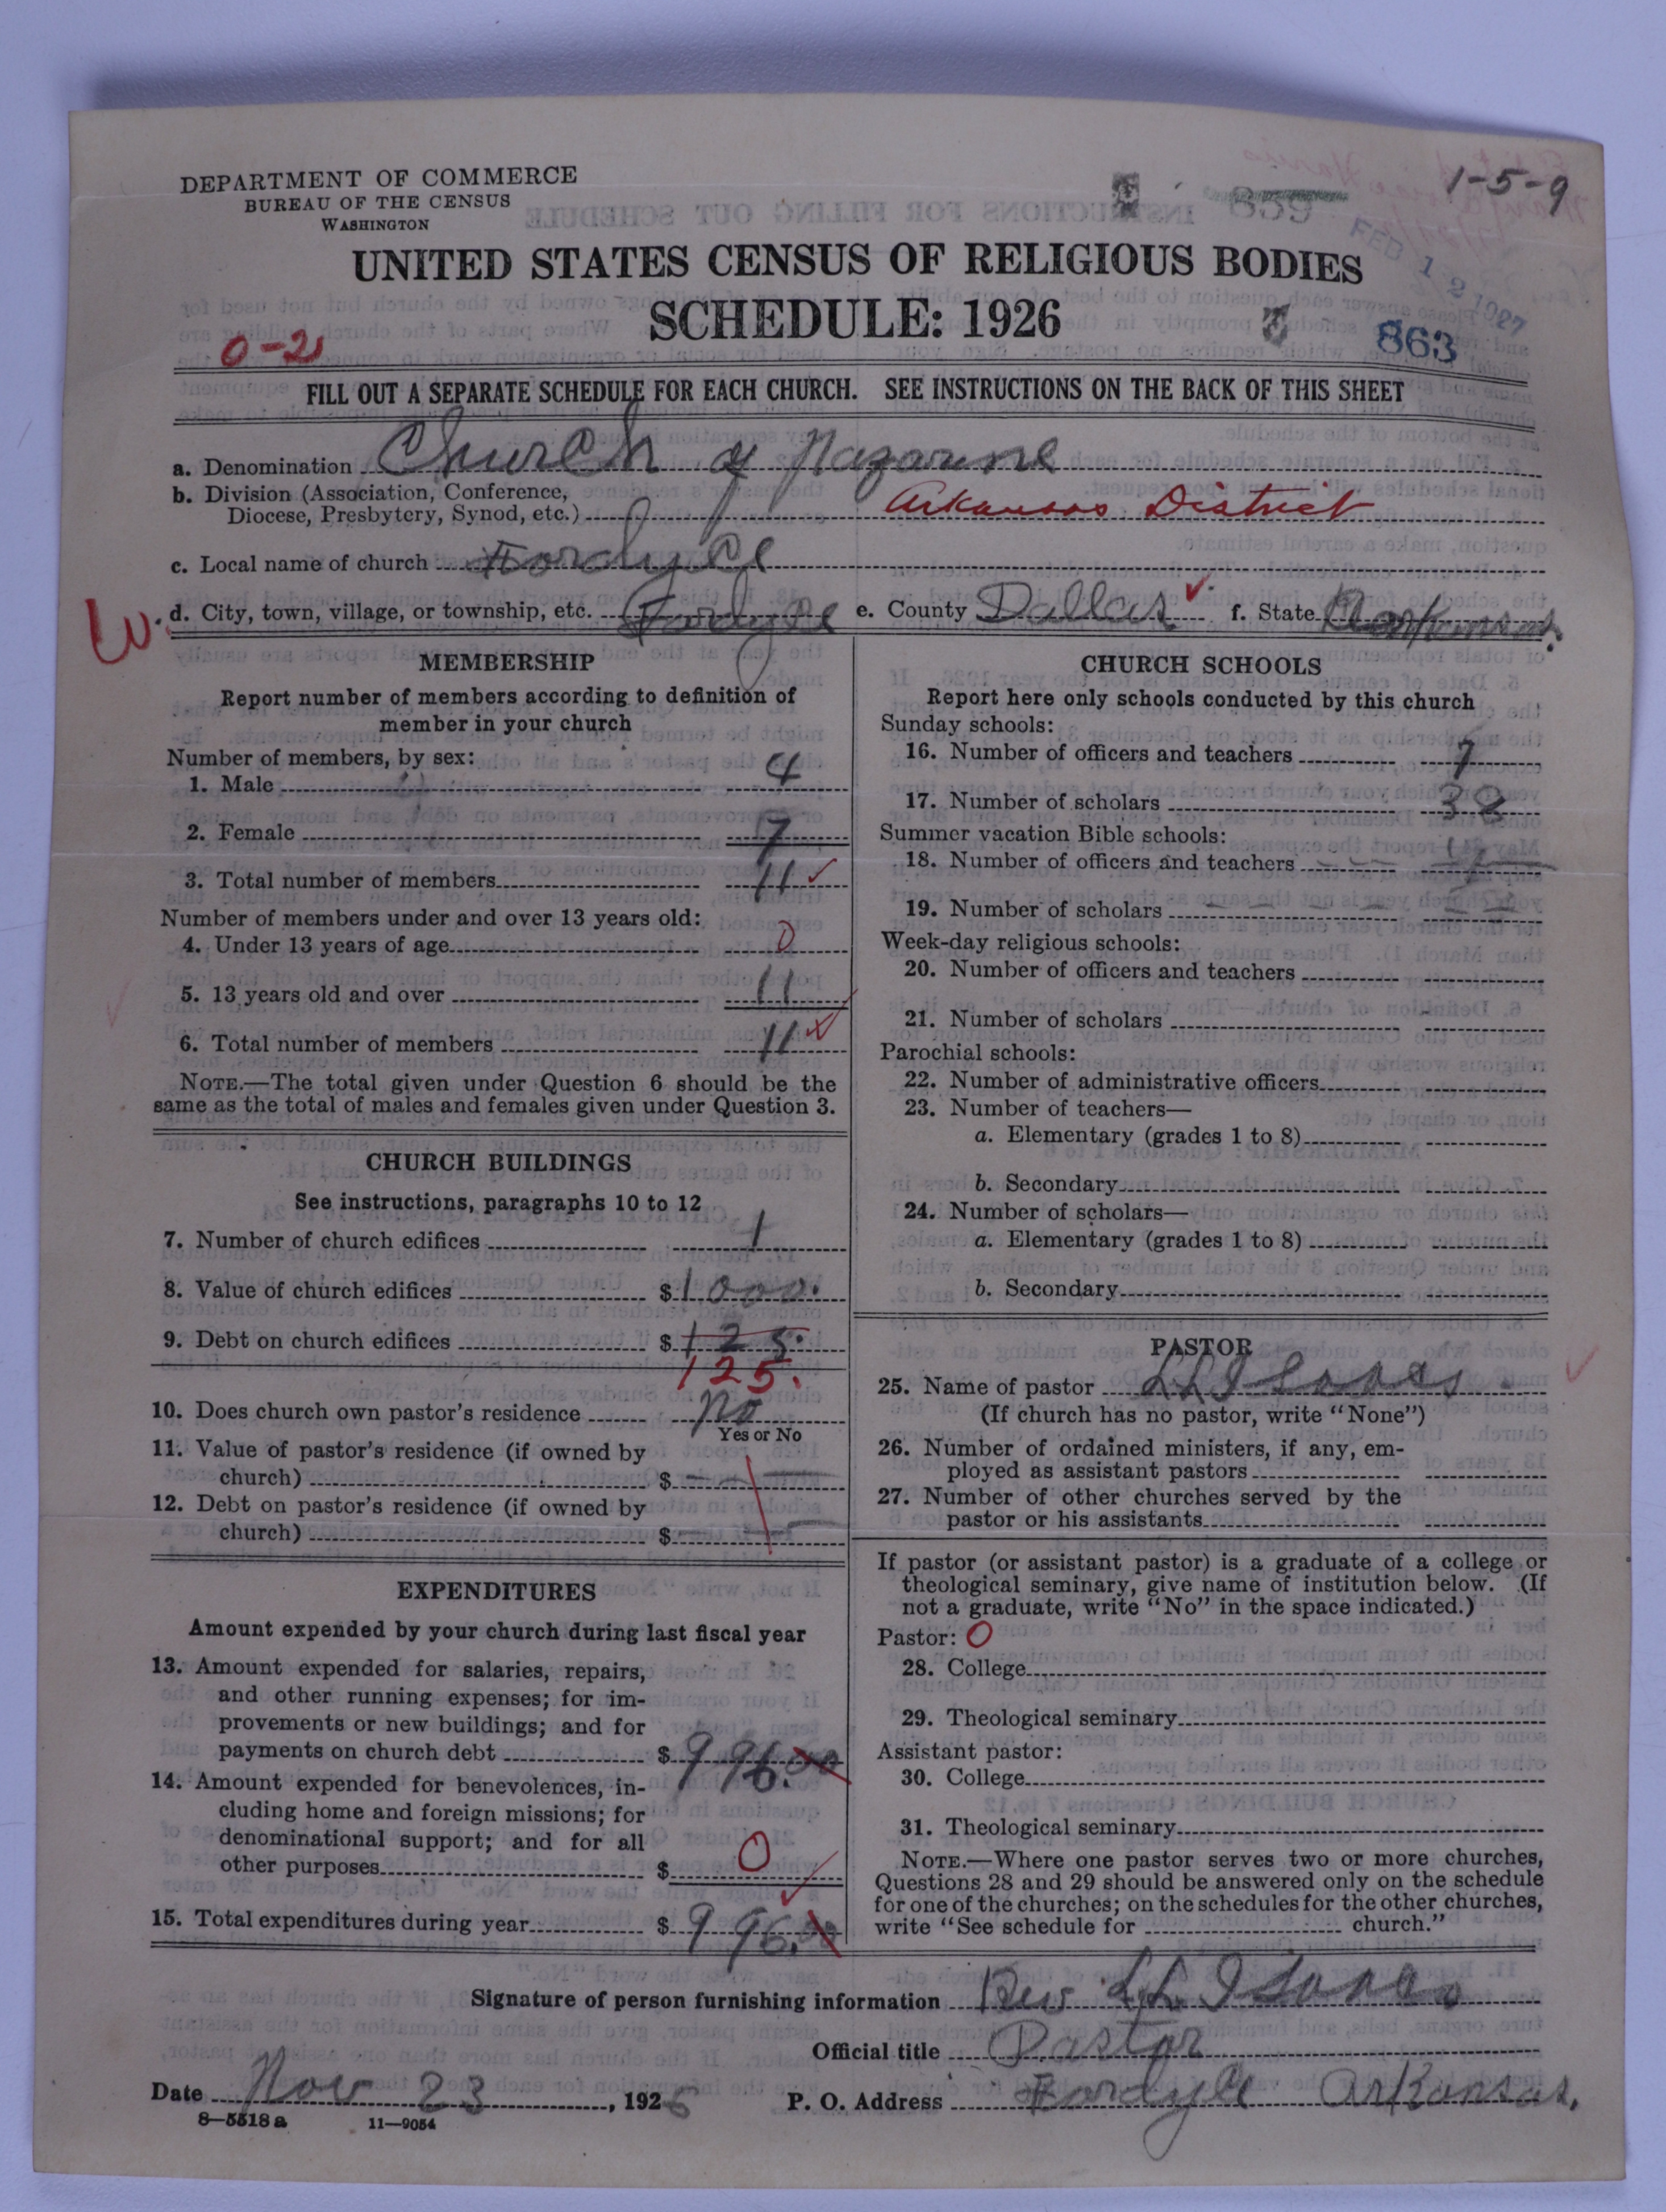 DEPARTMENT OF COMMERCE
BUREAU OF THE CENSUS
WASHINGTON
1-5-9
859
FEB 12 1927
UNITED STATES CENSUS OF RELIGIOUS BODIES
SCHEDULE: 1926
863
0-2
FILL OUT A SEPARATE SCHEDULE FOR EACH CHURCH. SEE INSTRUCTIONS ON THE BACK OF THIS SHEET
a. Denomination Church of Nazarene
b. Division (Association, Conference,
Diocese, Presbytery, Synod, etc.) Arkansas District
c. Local name of church Fordyce
W. d. City, town, village, or township, etc. Fordyce e. County Dallas f. State Arkansas.
MEMBERSHIP
Report number of members according to definition of
member in your church
Number of members, by sex:
1. Male 4
2. Female 7
3. Total number of members 11
Number of members under and over 13 years old:
4. Under 13 years of age 0
5. 13 years old and over 11
6. Total number of members 11
NOTE.—The total given under Question 6 should be the
same as the total of males and females given under Question 3.
CHURCH BUILDINGS
See instructions, paragraphs 10 to 12
7. Number of church edifices 1
8. Value of church edifices $ 1000.
9. Debt on church edifices $ 125.
125.
10. Does church own pastor's residence no
Yes or No
11. Value of pastor's residence (if owned by
church) $
12. Debt on pastor's residence (if owned by
church) $
EXPENDITURES
Amount expended by your church during last fiscal year
13. Amount expended for salaries, repairs,
and other running expenses; for im-
provements or new buildings; and for
payments on church debt $ 996.00
14. Amount expended for benevolences, in-
cluding home and foreign missions; for
denominational support; and for all
other purposes $ 0
15. Total expenditures during year $ 996.00
CHURCH SCHOOLS
Report here only schools conducted by this church
Sunday schools:
16. Number of officers and teachers 7
17. Number of scholars 38
Summer vacation Bible schools:
18. Number of officers and teachers
19. Number of scholars
Week-day religious schools:
20. Number of officers and teachers
21. Number of scholars
Parochial schools:
22. Number of administrative officers
23. Number of teachers—
a. Elementary (grades 1 to 8)
b. Secondary
24. Number of scholars—
a. Elementary (grades 1 to 8)
b. Secondary
PASTOR
25. Name of pastor L L Isaacs
(If church has no pastor, write "None")
26. Number of ordained ministers, if any, em-
ployed as assistant pastors
27. Number of other churches served by the
pastor or his assistants
If pastor (or assistant pastor) is a graduate of a college or
theological seminary, give name of institution below. (If
not a graduate, write "No" in the space indicated.)
Pastor: 0
28. College
29. Theological seminary
Assistant pastor:
30. College
31. Theological seminary
NOTE.—Where one pastor serves two or more churches,
Questions 28 and 29 should be answered only on the schedule
for one of the churches; on the schedules for the other churches,
write "See schedule for church."
Signature of person furnishing information Rev L L Isaacs
Official title Pastor
Date Nov 23, 1926 P. O. Address Fordyce Arkansas.
8—5518a 11—9054